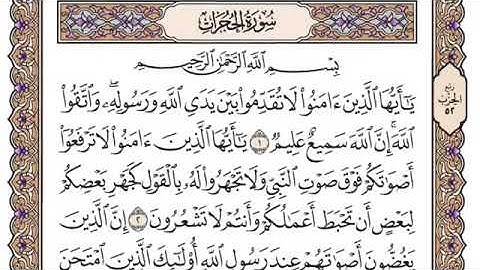 سُورَةُ الحُجُرَاتِ
بِسْمِ اللَّهِ الرَّحْمَٰنِ الرَّحِيمِ
يَٰٓأَيُّهَا ٱلَّذِينَ ءَامَنُوا۟ لَا تُقَدِّمُوا۟ بَيْنَ يَدَىِ ٱللَّهِ وَرَسُولِهِۦ ۖ وَٱتَّقُوا۟
ٱللَّهَ ۚ إِنَّ ٱللَّهَ سَمِيعٌ عَلِيمٌ ١ يَٰٓأَيُّهَا ٱلَّذِينَ ءَامَنُوا۟ لَا تَرْفَعُوٓا۟
أَصْوَٰتَكُمْ فَوْقَ صَوْتِ ٱلنَّبِىِّ وَلَا تَجْهَرُوا۟ لَهُۥ بِٱلْقَوْلِ كَجَهْرِ بَعْضِكُمْ
لِبَعْضٍ أَن تَحْبَطَ أَعْمَٰلُكُمْ وَأَنتُمْ لَا تَشْعُرُونَ ٢ إِنَّ ٱلَّذِينَ
يَغُضُّونَ أَصْوَٰتَهُمْ عِندَ رَسُولِ ٱللَّهِ أُو۟لَٰٓئِكَ ٱلَّذِينَ ٱمْتَحَنَ
ربع
الحزب
٥٢